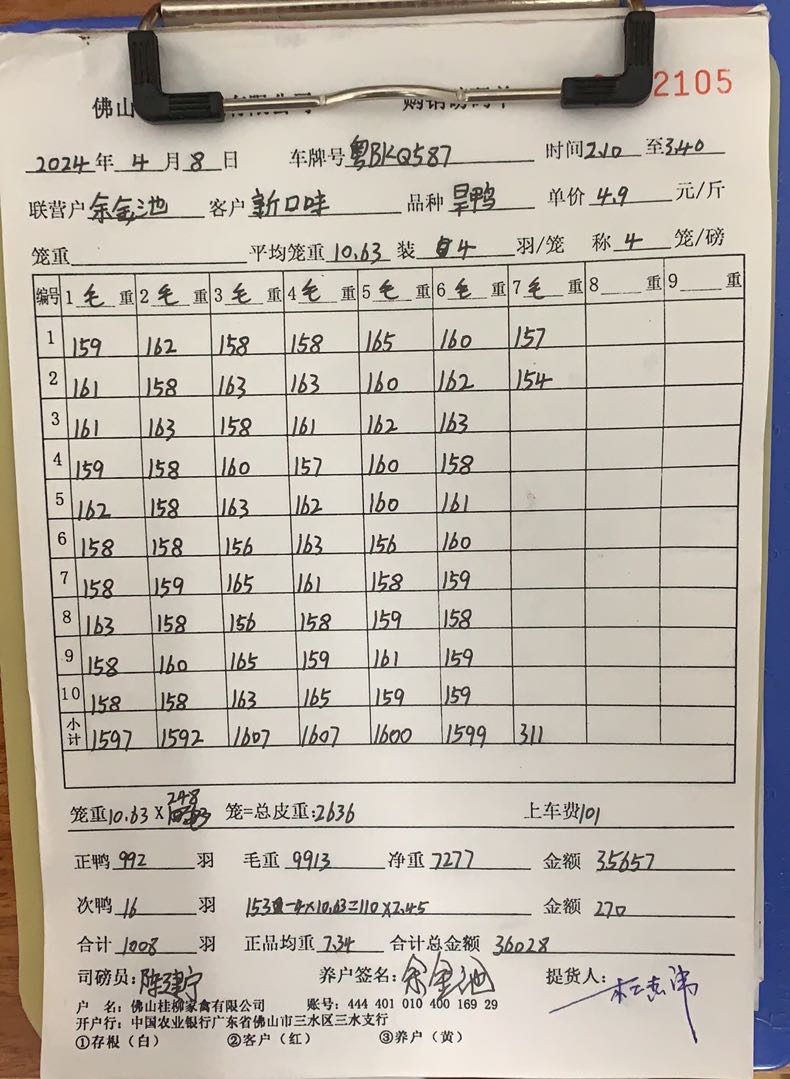 佛山 有限公司 购销磅码单 2105
2024年 4月 8日 车牌号 粤BKQ587 时间 2.10 至 3.40
联营户 余金池 客户 新口味 品种 旱鸭 单价 4.9 元/斤
笼重 平均笼重 10.63 装 4 羽/笼 称 4 笼/磅
编号 1 毛 重 2 毛 重 3 毛 重 4 毛 重 5 毛 重 6 毛 重 7 毛 重 8 重 9 重
1 159 162 158 158 165 160 157
2 161 158 163 163 160 162 154
3 161 163 158 161 162 163
4 159 158 160 157 160 158
5 162 158 163 162 160 161
6 158 158 156 163 156 160
7 158 159 165 161 158 159
8 163 158 156 158 159 158
9 158 160 165 159 161 159
10 158 158 163 165 159 159
小计 1597 1592 1607 1607 1600 1599 311
笼重 10.63 X 248 笼=总皮重: 2636 上车费 101
正鸭 992 羽 毛重 9913 净重 7277 金额 35657
次鸭 16 羽 153-4×10.63=110×2.45 金额 270
合计 1008 羽 正品均重 7.34 合计总金额 36028
司磅员: 陈建宁 养户签名: 余金池 提货人:
户 名: 佛山桂柳家禽有限公司 账号: 444 401 010 400 169 29
开户行: 中国农业银行广东省佛山市三水区三水支行
①存根(白) ②客户(红) ③养户(黄)